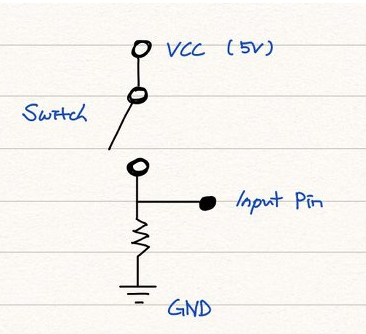 VCC (5V)
Switch
Input Pin
GND